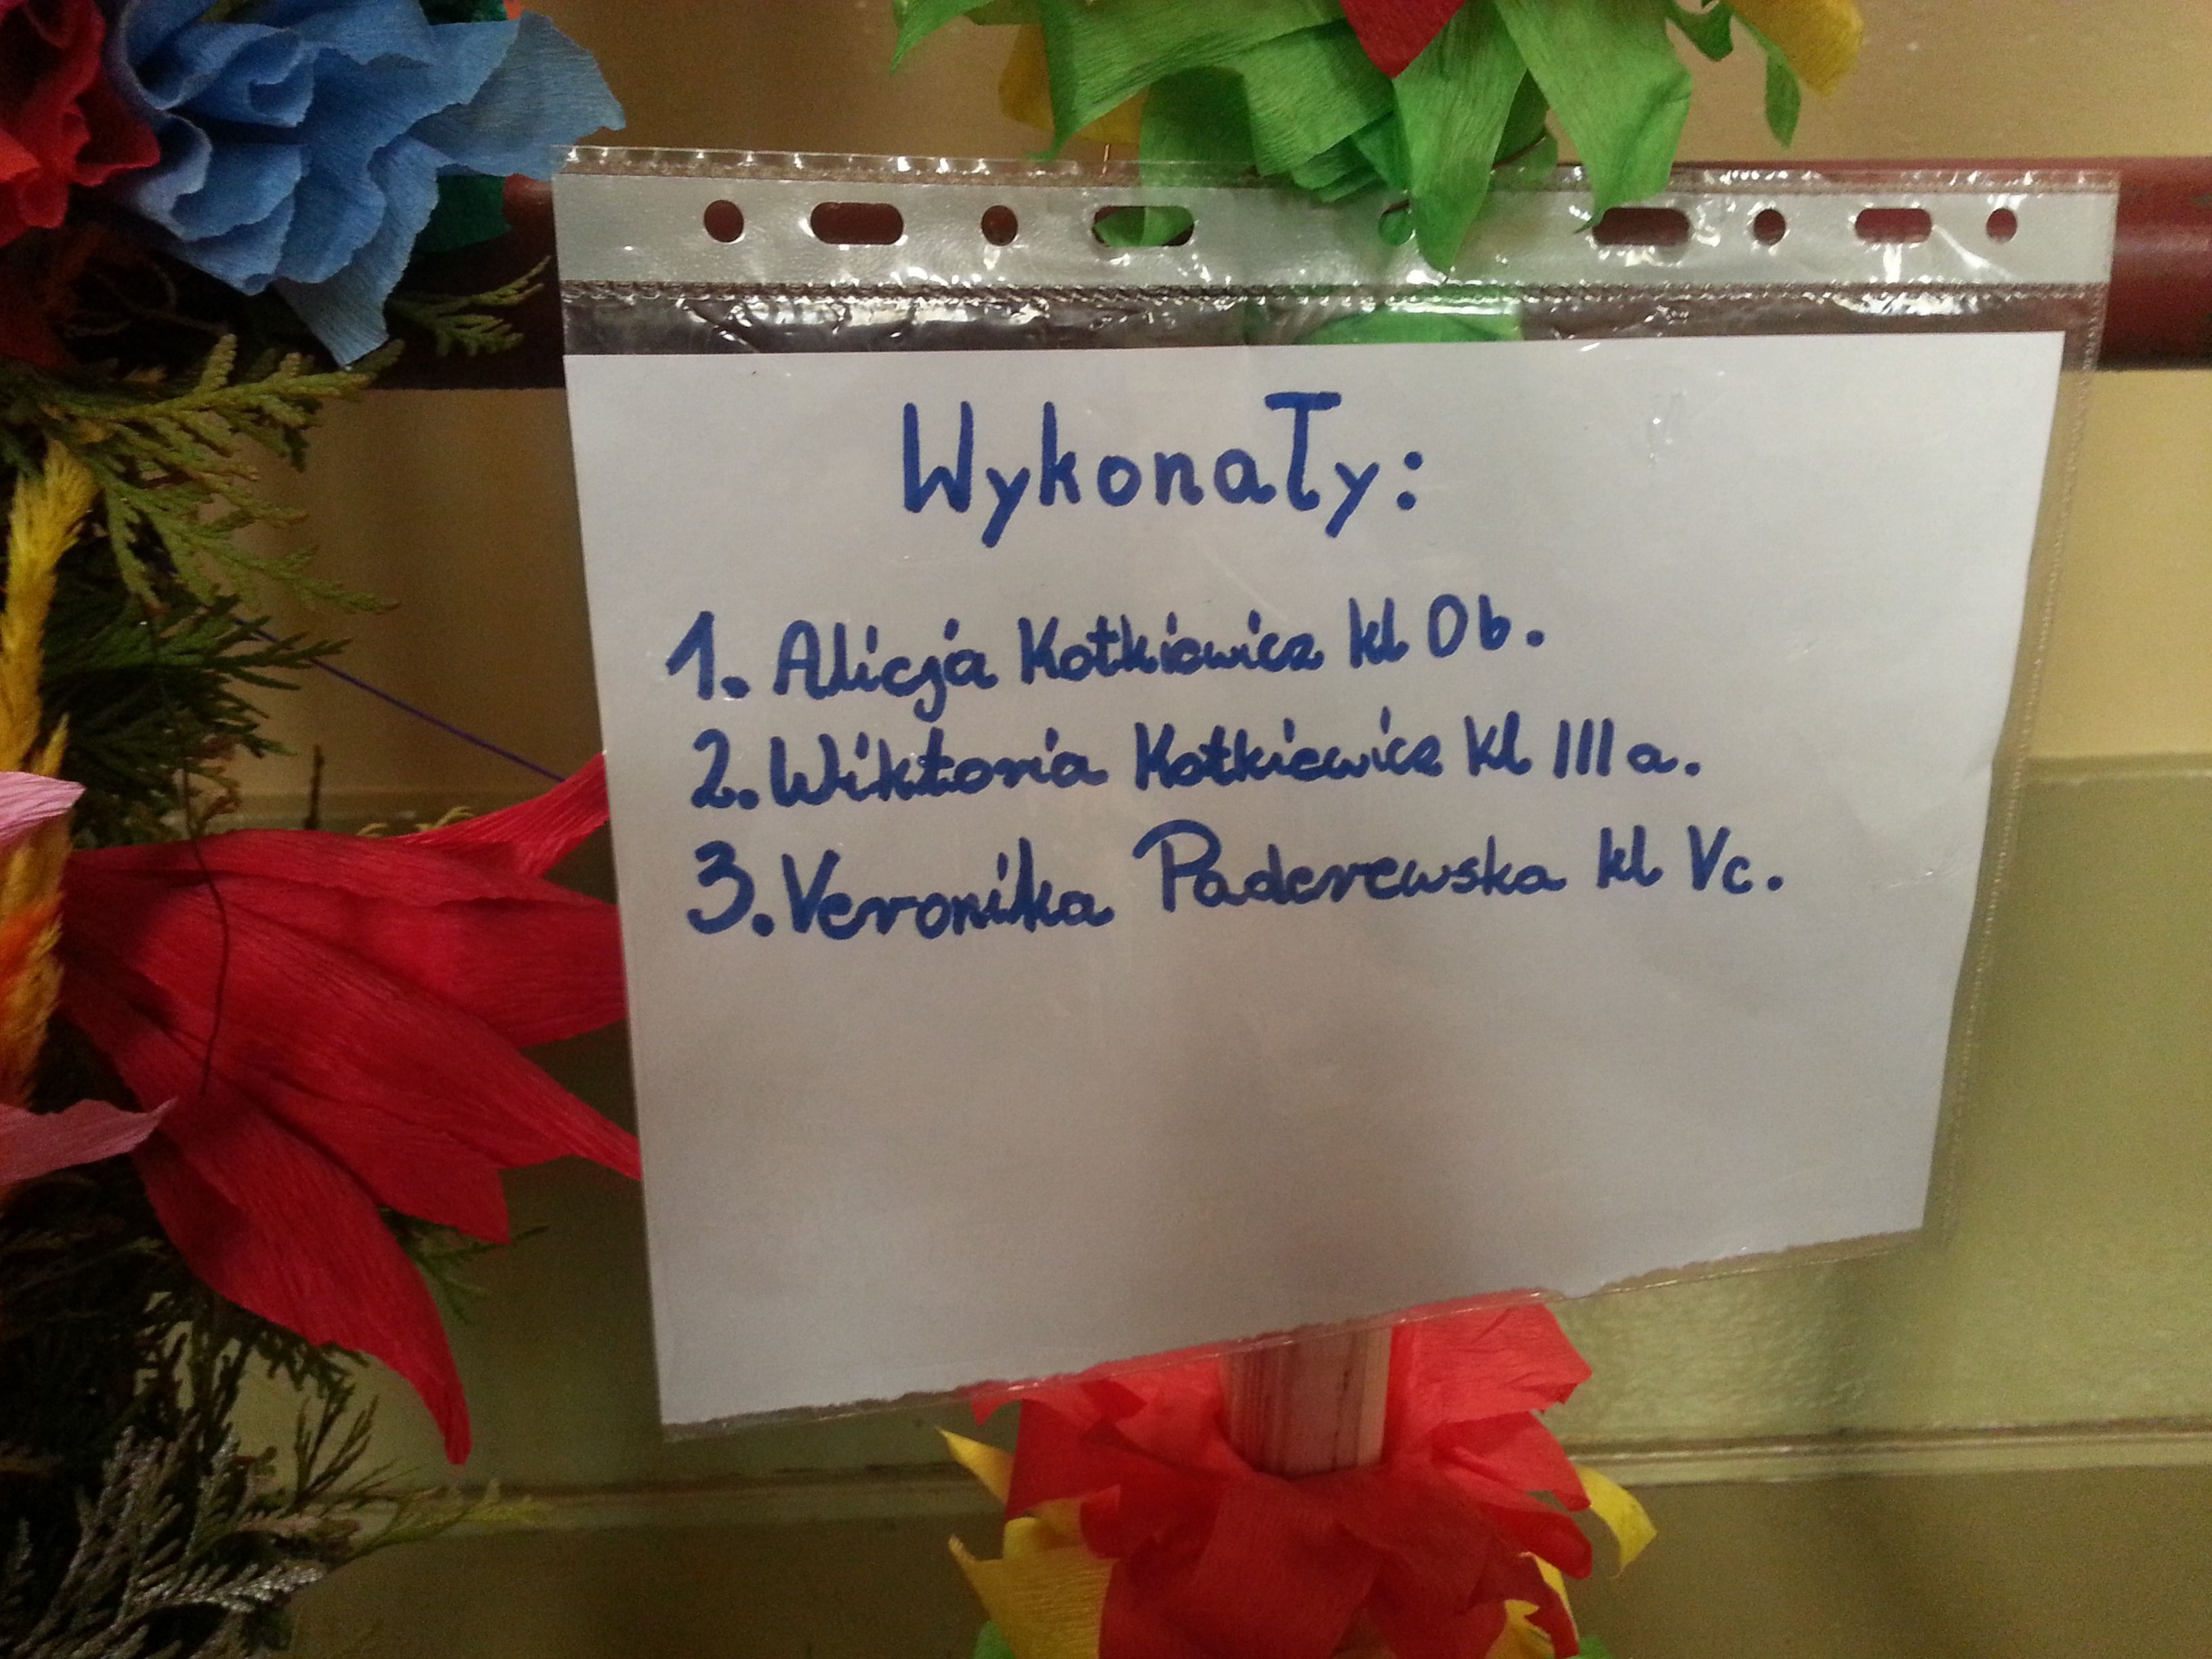 Wykonały:
1. Alicja Kotkiewicz kl 0b.
2. Wiktoria Kotkiewicz kl III a.
3. Veronika Paderewska kl Vc.